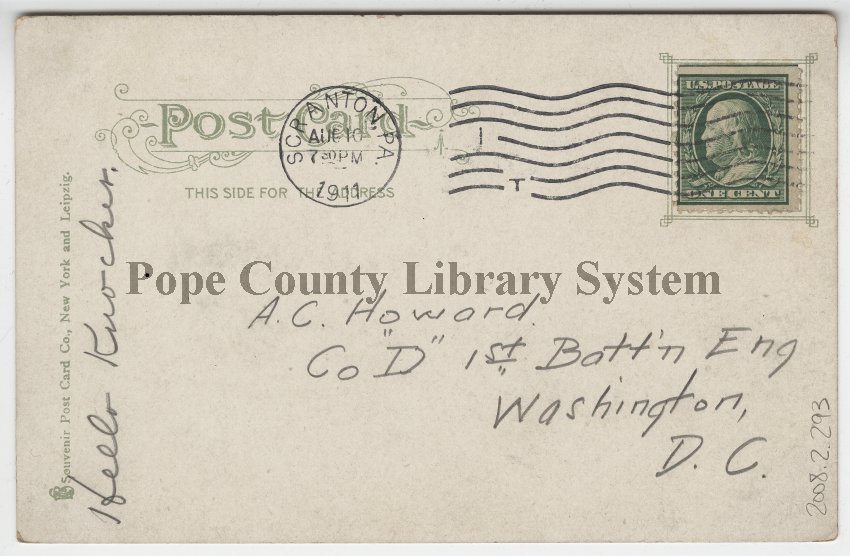 Post Card
THIS SIDE FOR THE ADDRESS
SCRANTON, PA.
AUG 10
7 30 PM
1911
1
T
U.S. POSTAGE
ONE CENT
Souvenir Post Card Co., New York and Leipzig.
Hello Knocker.
Pope County Library System
A.C. Howard.
Co "D" 1st Batt'n Eng
Washington,
D. C.
2008.2.293